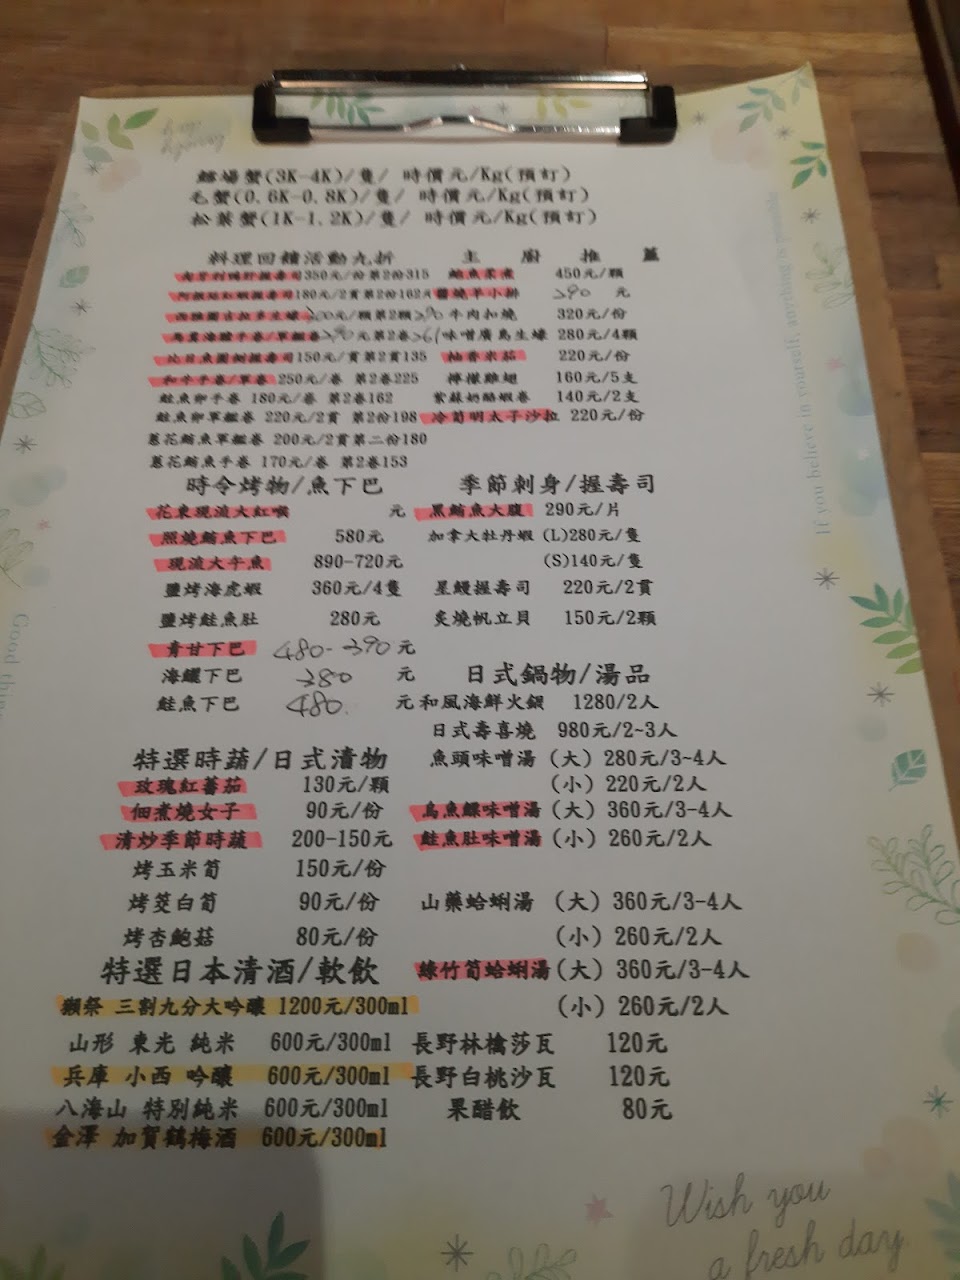 鱈場蟹(3K-4K)/隻/ 時價元/Kg(預訂)
毛蟹(0.6K-0.8K)/隻/ 時價元/Kg(預訂)
松葉蟹(1K-1.2K)/隻/ 時價元/Kg(預訂)
料理回饋活動九折
匈牙利鴨肝握壽司350元/份第2份315
阿根廷紅蝦握壽司180元/2貫第2份162元
西雅圖吉拉多生蠔 元/顆第2顆
馬糞海膽手卷/軍艦卷 元第2卷
比目魚圓鰤握壽司150元/貫第2貫135
和牛手卷/軍卷 250元/卷 第2卷225
鮭魚卵手卷 180元/卷 第2卷162
鮭魚卵軍艦卷 220元/2貫 第2份198
蔥花鮪魚軍艦卷 200元/2貫第二份180
蔥花鮪魚手卷 170元/卷 第2卷153
主廚推薦
鮑魚 450元/顆
醬燒羊小排 390 元
牛肉扣燒 320元/份
味噌廣島生蠔 280元/4顆
柚香米茄 220元/份
檸檬雞翅 160元/5支
紫蘇奶酪蝦卷 140元/2支
冷筍明太子沙拉 220元/份
時令烤物/魚下巴
花東現流大紅喉 元
照燒鮪魚下巴 580元
現流大午魚 890-720元
鹽烤海虎蝦 360元/4隻
鹽烤鮭魚肚 280元
青甘下巴 480-390元
海鱺下巴 380 元
鮭魚下巴 480 元
季節刺身/握壽司
黑鮪魚大腹 290元/片
加拿大牡丹蝦 (L)280元/隻
(S)140元/隻
星鰻握壽司 220元/2貫
炙燒帆立貝 150元/2顆
日式鍋物/湯品
和風海鮮火鍋 1280/2人
日式壽喜燒 980元/2~3人
魚頭味噌湯 (大) 280元/3~4人
(小) 220元/2人
烏魚鰾味噌湯 (大) 360元/3-4人
鮭魚肚味噌湯 (小) 260元/2人
山藥蛤蜊湯 (大) 360元/3-4人
(小) 260元/2人
綠竹筍蛤蜊湯 (大) 360元/3-4人
(小) 260元/2人
特選時蔬/日式漬物
玫瑰紅蕃茄 130元/顆
佃煮燒女子 90元/份
清炒季節時蔬 200-150元
烤玉米筍 150元/份
烤筊白筍 90元/份
烤杏鮑菇 80元/份
特選日本清酒/軟飲
獺祭 三割九分大吟釀 1200元/300ml
山形 東光 純米 600元/300ml
兵庫 小西 吟釀 600元/300ml
八海山 特別純米 600元/300ml
金澤 加賀鶴梅酒 600元/300ml
長野林檎莎瓦 120元
長野白桃沙瓦 120元
果醋飲 80元
If you believe in yourself, anything is possible
Good
Wish you
a fresh day